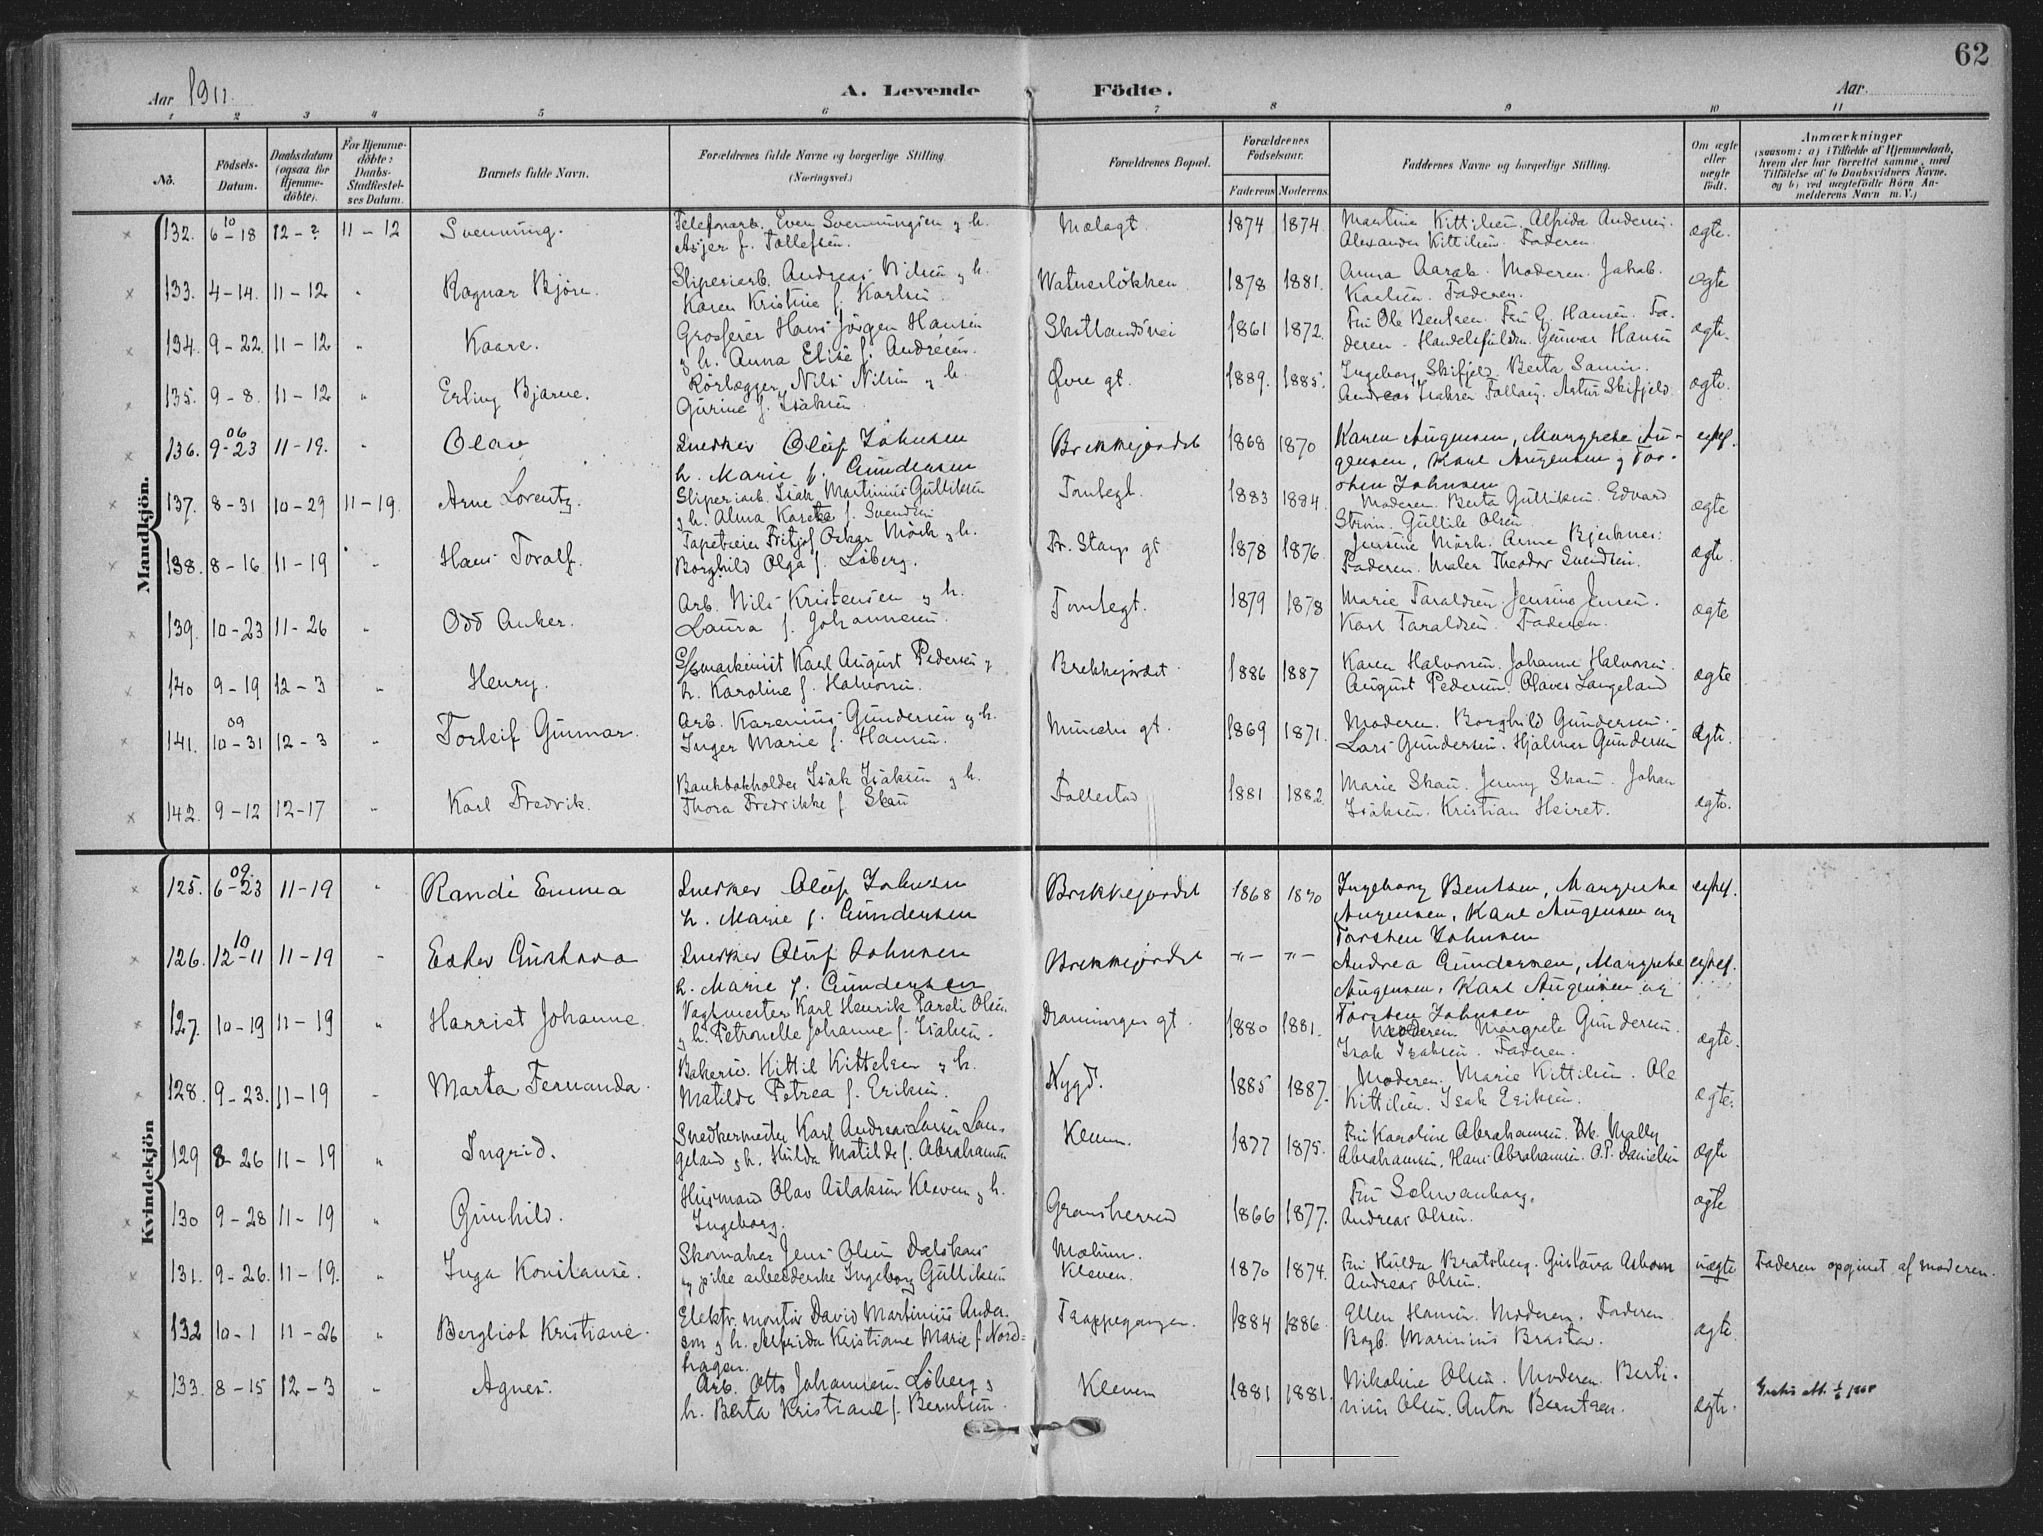 62
Aar 1911.
A. Levende Födte.
Aar
1 2 3 4 5 6 7 8 9 10 11
No.
Födsels-Datum.
Daabsdatum (ogsaa for Hjemmedöbte).
For Hjemmedöbte: Daabs-Stadfæstelses Datum.
Barnets fulde Navn.
Forældrenes fulde Navne og borgerlige Stilling. (Næringsvei.)
Forældrenes Bopæl.
Forældrenes Födselsaar.
Faderens Moderens
Faddernes Navne og borgerlige Stilling.
Om ægte eller uægte födt.
Anmærkninger
(saasom: a) i Tilfælde af Hjemmedaab, hvem der har forrettet samme, med Tilföielse af to Daabsvidners Navne, og b) ved uægtefödte Börn Anmelderens Navn m. V.)
Mandkjön.
132. 6-18 10 12-? 11-12 Svenning. Telefonarb. Even Svenningsen g h. Mælagt. 1874 1874. Martine Kittilsen. Alfrida Andersen. ægte.
Asjer f. Tollefsen. Alexander Kittilsen. Faderen.
133. 4-14. 11-12 " Ragnar Bjørn. Sliperiarb. Andreas Nilsen g h. 1878 1881. Anna Aarak. Moderen. Jakob. ægte
Karen Kristine f. Karlsen. Karlsen. Faderen.
134. 9-22. 11-12 " Kaare. Grosserer Hans Jörgen Hansen 1861 1872. Fru Ole Bentsen. Fru G. Hansen. Fa- ægte.
g h. Anna Elise f. Andresen. deren. Gunnar Hansen
135. 9-8. 11-12 " Erling Bjarne. Rörlægger Nils Nilsen g h. Øvre gt. 1889. 1885. Ingeborg Skifjeld. Berta ægte.
Gurine f. Isaksen. Andreas Isaksen Artur Skifjeld
136. 9-23 06 11-19. " Olav Snedker Oluf Johnsen Brekkejordet 1868 1870 Karen Augensen, Margrete Au-
h. Marie f. Gundersen gensen, Karl Augensen g Tor-
sten Johnsen
137. 8-31 10-29 11-19. Arne Lorentz. Sliperiarb. Isak Martinius Gulliksen Tomtegt. 1883 1884. Moderen. Berta Gulliksen. Edvard ægte
g h. Alma f. Svendsen Gullik Olsen
138. 8-16 11-19 " Hans Toralf. Tapetserer Fritjof Oskar Mörk g h. Fr. Stangs gt 1878 1876. Jensine Mörk. Anne Bjerknes. ægte.
Borghild Olga f. Löberg. Faderen. Maler Theodor Svendsen.
139. 10-23 11-26 " Odd Anker. Arb. Nils Kristensen g h. Tomtegt. 1879 1878 Marie Taraldsen. Jensine Jensen. ægte
Laura f. Johannesen. Karl Taraldsen. Faderen.
140 9-19 12-3 " Henry. Karl August Pedersen g Brekkejordet 1886 1887 Karen Halvorsen. Johanne Halvorsen. ægte
h. Karoline f. Halvorsen. August Pedersen. Olaves Langeland
141. 10-31 09 12-3 " Torleif Gunnar. Arb. Karenius Gundersen g h. Munchs gt. 1869 1871. Moderen. Borghild Gundersen. ægte.
Inger Marie f. Hansen. Lars Gundersen. Hjalmar Gundersen
142. 9-12 12-17 " Karl Fredrik. Bankbokholder Isak Isaksen g h. Follestad 1881 1882. Marie Skau. Jenny Skau. Johan ægte.
Thora Fredrikke f Skau Isaksen. Kristian Heiret.
Kvindekjön
125. 6-23 09. 11-19 " Randi Emma Snedker Oluf Johnsen Brekkejordet 1868 1870 Ingeborg Bentsen, Margrete
h. Marie f. Gundersen Augensen, Karl Augensen og
Torsten Johnsen
126. 12-11 10 11-19 " Ester Gustava Snedker Oluf Johnsen Brekkejordet -"- -"- Andrea Gundersen, Margrete
h. Marie f. Gundersen Augensen, Karl Augensen og
Torsten Johnsen
127. 10-19 11-19 " Harriet Johanne. Vagtmester Karl Henrik Olsen Dronningens gt. 1880 1881. Moderen. Margrete Gundersen. ægte.
g h. Petronelle Johanne f. Isaksen. Isak Isaksen. Faderen.
128. 9-23. 11-19 " Marta Fernanda. Kittil Kittelsen g h. Nygd. 1885 1887. Moderen. Marie Kittilsen. Ole ægte.
Matilde Petrea f. Eriksen. Kittilsen. Isak Eriksen.
129 8-26 11-19 " Ingrid. Snedkermester Karl Andreas Larsen Lan- Kleven. 1877 1875. Fru Karoline Abrahamsen. Frk. Mally ægte
geland g h. Hulda Matilde f. Abrahamsen Abrahamsen, Hans Abrahamsen. O.P. Danielsen
130 9-28 11-19 " Gunhild. Husmand Olav Aslaksen Kleven g h. Gransherred 1866 1877. Fru Schwanborg. ægte
Ingeborg. Andreas Olsen.
131. 9-26. 11-19. " Inga Konstanse. Skomaker Jens Olsen Mælum. 1870 1874. Fru Hulda Bratsberg. Gustava uægte Faderen opgivet af moderen.
g pike arbeiderske Ingeborg Gulliksen Kleven. Andreas Olsen.
132 10-1 11-26 " Bergliot Kristiane. Elektr. montör David Martinius Ander- Trappegangen. 1884 1886. Ellen Hansen. Moderen. Faderen. ægte.
sen g h. Alfrida Kristiane Marie f Nord- Marinius
hagen.
133. 8-15 12-3 " Agnes. Arb. Otto Johansen Löberg g Kleven 1881 1881. Nikoline Olsen. Moderen. Berti- ægte.
h. Berta Kristiane f. Berntsen. nius Olsen. Anton Berntsen.